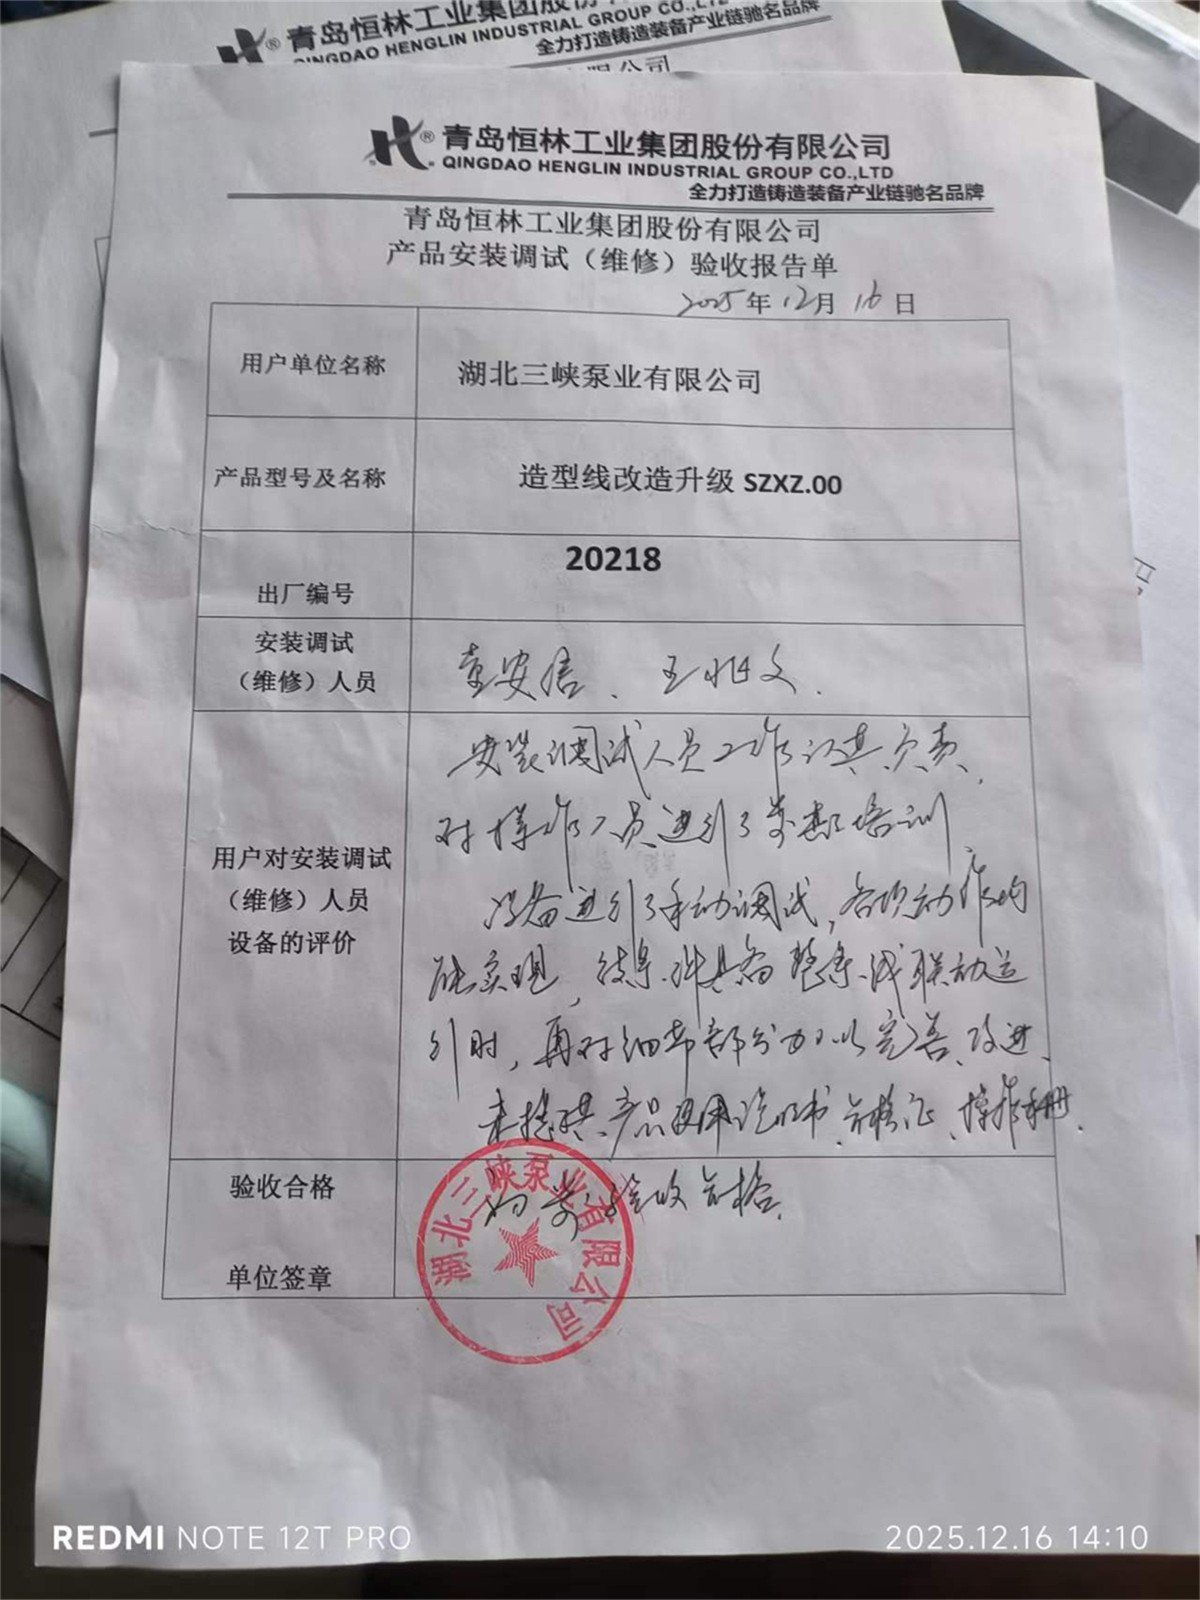 青岛恒林工业集团股份有限公司
QINGDAO HENGLIN INDUSTRIAL GROUP CO.,LTD
全力打造铸造装备产业链驰名品牌
有限公司
青岛恒林工业集团股份有限公司
QINGDAO HENGLIN INDUSTRIAL GROUP CO.,LTD
全力打造铸造装备产业链驰名品牌
青岛恒林工业集团股份有限公司
产品安装调试（维修）验收报告单
2025年12月16日
用户单位名称
湖北三峡泵业有限公司
产品型号及名称
造型线改造升级 SZXZ.00
20218
出厂编号
安装调试
（维修）人员
王兆文.
用户对安装调试
（维修）人员
设备的评价
安装调试人员工作认真负责,
对操作人员进行了 培训
设备进行了手动调试, 各项动作均
能实现, 待条件具备整条线联动运
行时, 再对细节部分加以完善、改进.
未提供产品使用说明书、合格证、操作手册.
验收合格
单位签章
验收合格.
湖北三峡泵业有限公司
REDMI NOTE 12T PRO
2025.12.16 14:10